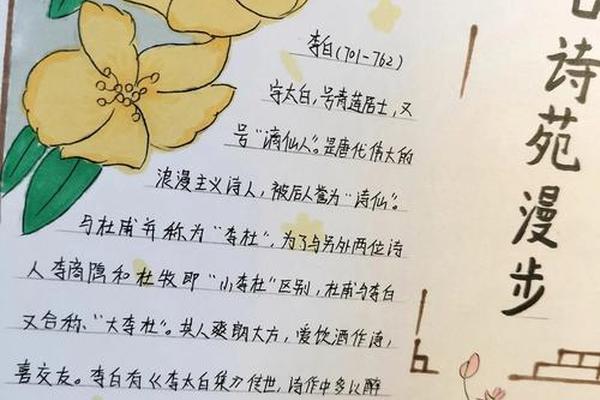 李白(701-762)
字太白,号青莲居士,又
号“谪仙人”。是唐代伟大的
浪漫主义诗人,被后人誉为“诗仙”。
与杜甫并称为“李杜”,为了与另外两位诗
人李商隐和杜牧即“小李杜”区别,杜甫与李白
又合称“大李杜”。其人爽朗大方,爱饮酒作诗,
喜交友。李白有《李太白集》传世,诗作中多以醉
诗苑漫步